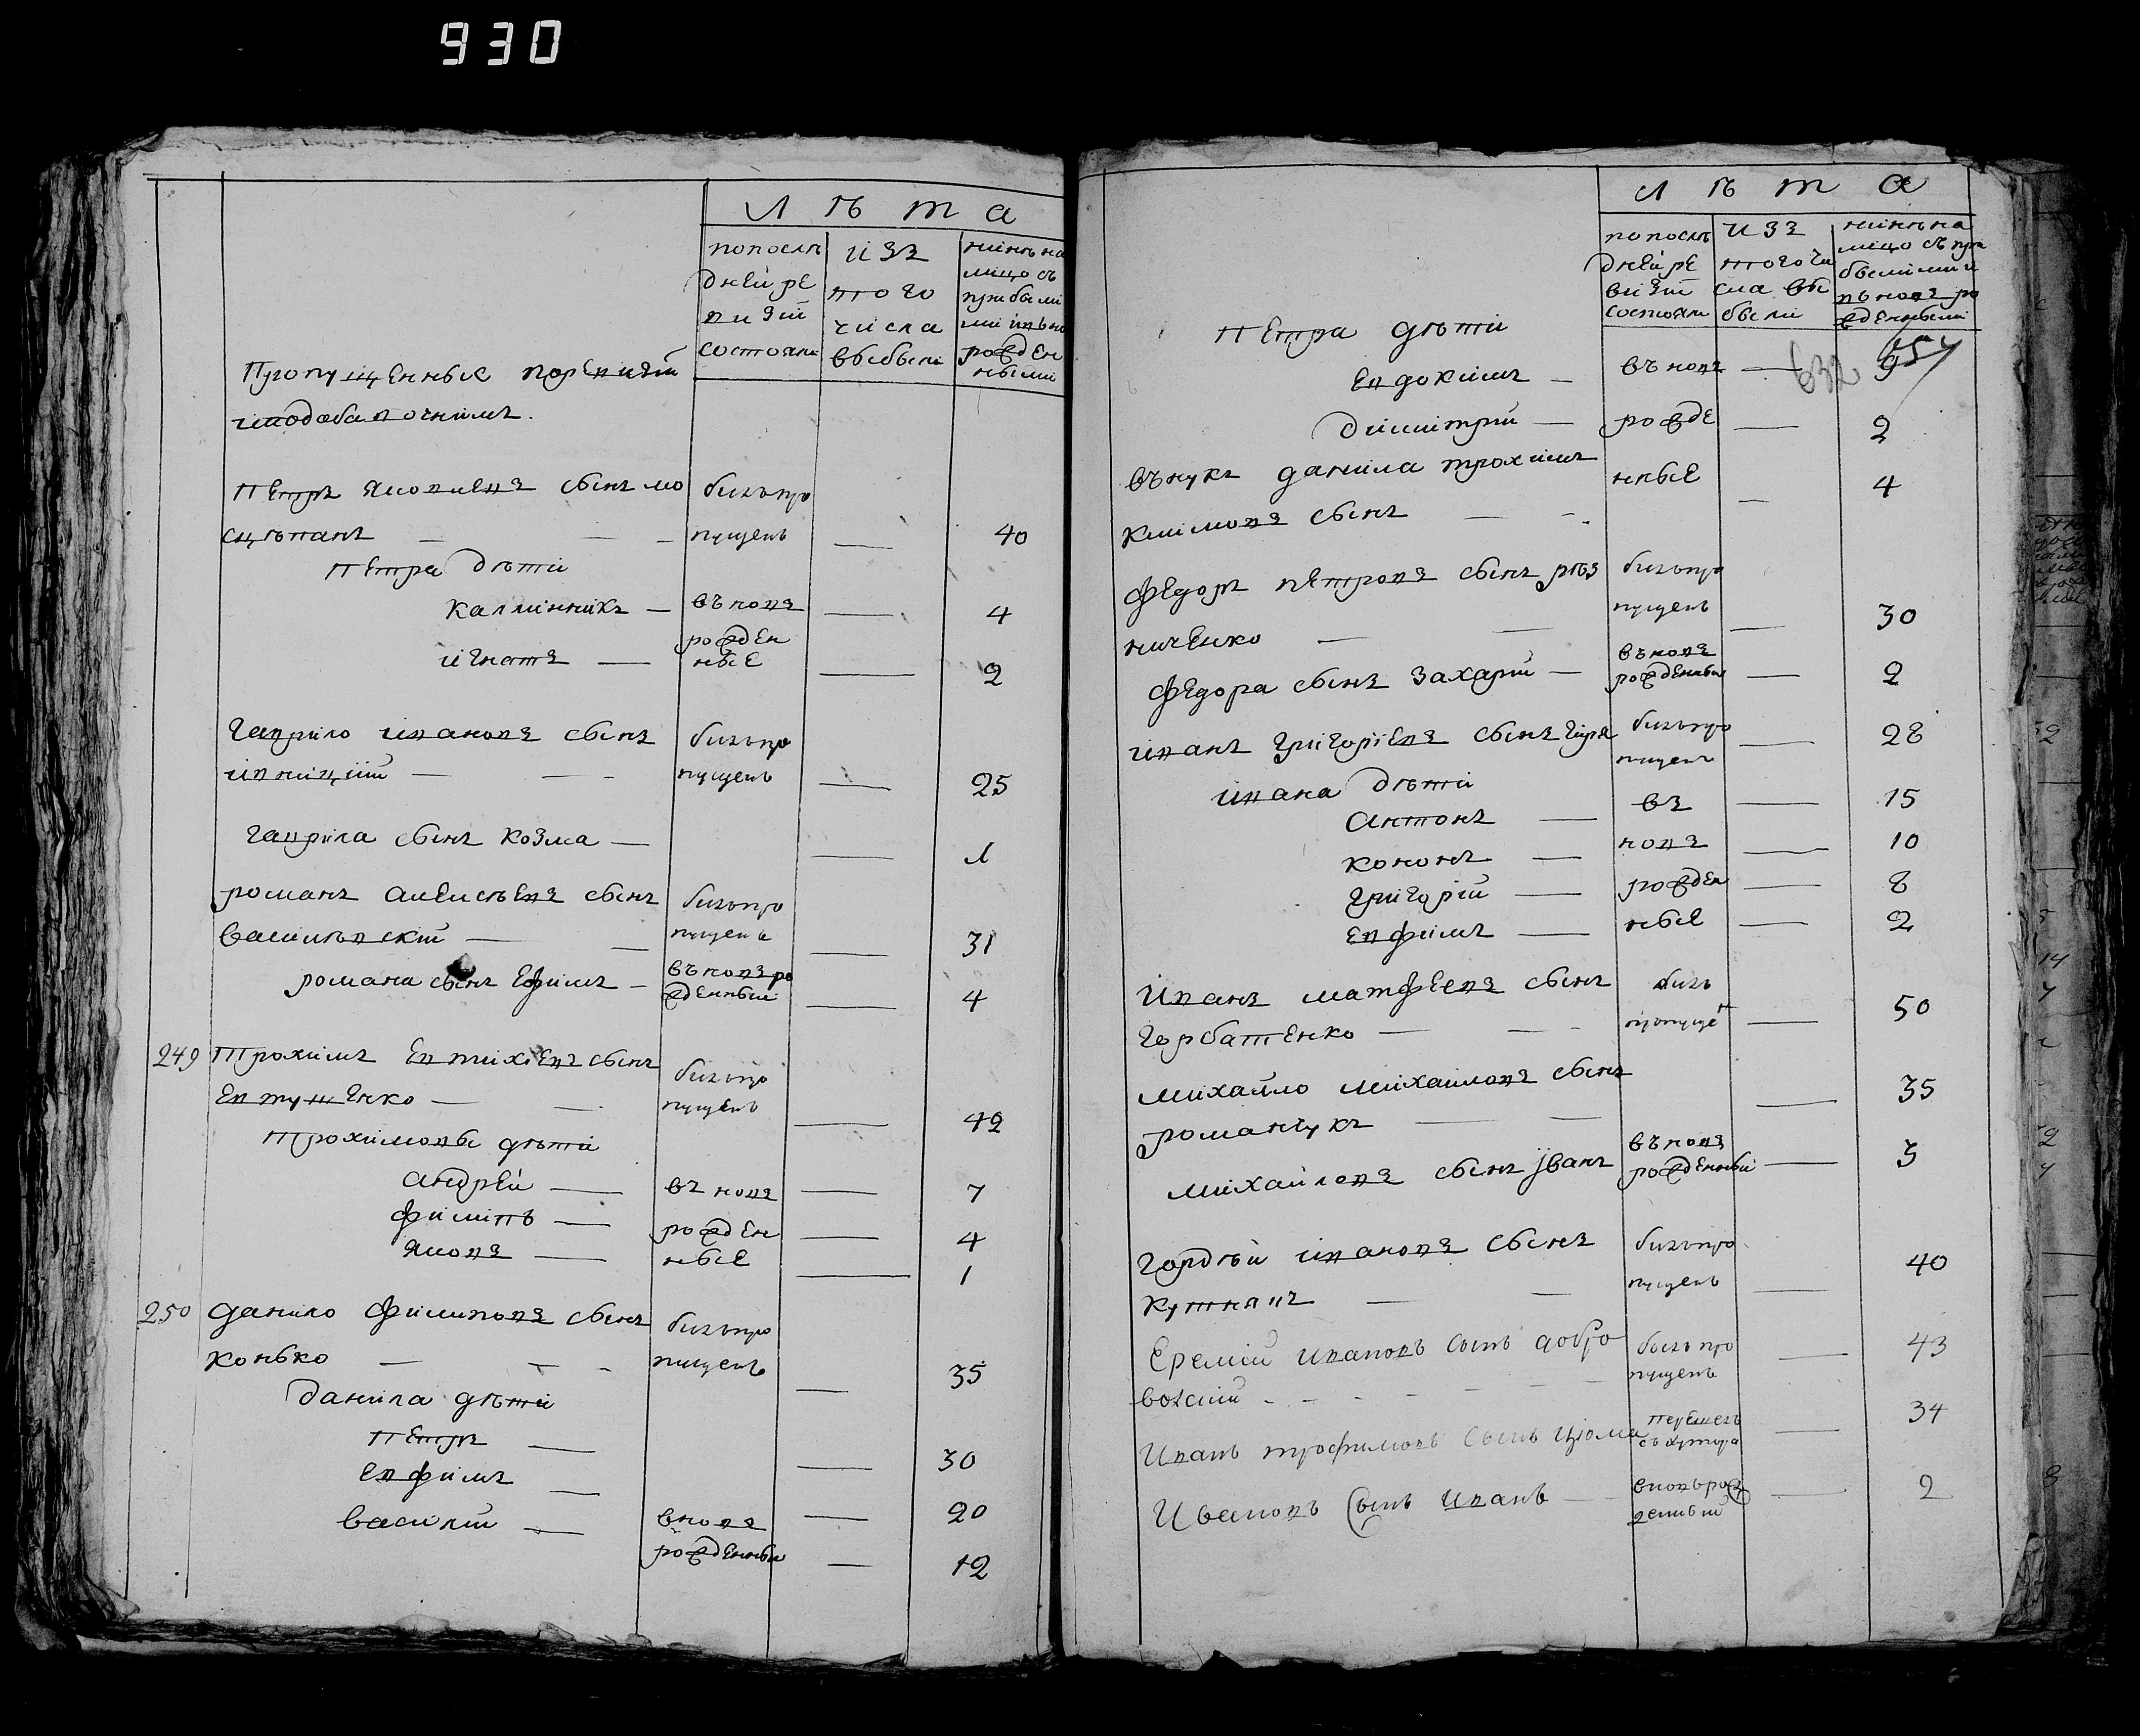 930
Лѣта
по последней ревизіи состояли
изъ того числа выбыли
нынѣ на лицо съ прибылыми и вновь рожденными
Пропущенные по ревизіи
Петръ Яковлевъ сынъ мо
сцѣпанъ — былъ пропущенъ — 40
Петра дѣти
Каллиникъ — вновь — 4
Игнатъ — рожденные — 2
Гаврило Ивановъ сынъ былъ про
пущенъ — 25
Гаврила сынъ Козма — 1
Романъ Алексѣевъ сынъ былъ про
Василѣвский — пущенъ — 31
Романа сынъ Ефимъ — въновъ рожденный — 4
249 Трохимъ Евтихіевъ сынъ былъ про
Евтушенко — пущенъ — 42
Трохимовы дѣти
Андрей — въ новъ — 7
Филипъ — рожден — 4
Яковъ — ные — 1
250 Данило Филиповъ сынъ былъ про
Конько — пущенъ — 35
Данила дѣти
Петръ — 30
Евфимъ — 20
Василий — вновъ рожденный — 12
Лѣта
по последней ревизіи состояли
изъ того числа выбыли
нынѣ на лицо съ прибылыми и вновъ рожденными
632
Петра дѣти
Евдокимъ — въ новъ — 9
Димитрій — рожде — 2
Вънукъ Данила Трохимъ нные — 4
Климовъ сынъ
Федоръ Петровъ сынъ рѣз былъ про
ниченко — пущенъ — 30
Федора сынъ Захарій — въновъ рожденный — 2
Иванъ Григоріевъ сынъ Гиря былъ пропущенъ — 28
Ивана дѣти
Антонъ — въ — 15
Кононъ — новъ — 10
Григорій — рожден — 8
Евфимъ — ные — 2
Иванъ Матфеевъ сынъ былъ
Горбатенко — пропущен — 50
Михайло Михайловъ сынъ — 35
Романчукъ
Михайловъ сынъ Іванъ въновъ рожденный — 3
Гордѣй Ивановъ сынъ былъ про
Кутнякъ — пущенъ — 40
Еремій Ивановъ сынъ добро былъ про — 43
вожий — пущенъ
Иванъ Трофимовъ сынъ Цюма перешелъ съ хутора — 34
Ивановъ сынъ Иванъ — вновърожденный — 2